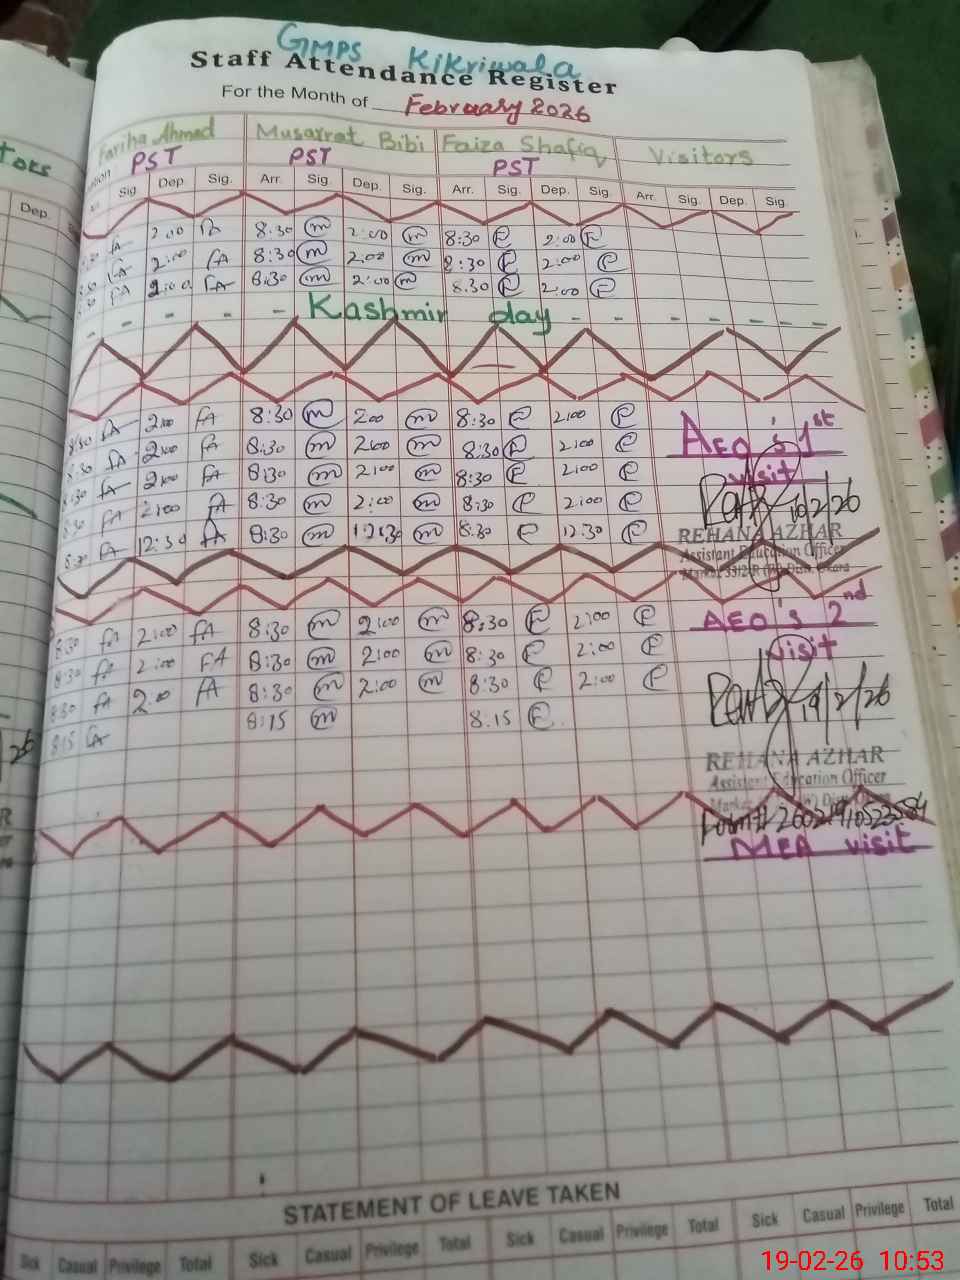 GMPS Kikriwala
Staff Attendance Register
For the Month of February 2026
Fariha Ahmed Musarrat Bibi Faiza Shafiq Visitors
PST PST PST
Dep. Sig. Dep. Sig. Arr. Sig. Dep. Sig. Arr. Sig. Dep. Sig. Arr. Sig. Dep. Sig.
2:00 8:30 m 2:00 m 8:30 F 2:00 F
FA 2:00 FA 8:30 m 2:00 m 8:30 F 2:00 F
FA 2:00 FA 8:30 m 2:00 m 8:30 F 2:00 F
Kashmir day
8:30 FA 2:00 FA 8:30 m 2:00 m 8:30 F 2:00 F
8:30 FA 2:00 FA 8:30 m 2:00 m 8:30 F 2:00 F
8:30 FA 2:00 FA 8:30 m 2:00 m 8:30 F 2:00 F
8:30 FA 2:00 FA 8:30 m 2:00 m 8:30 F 2:00 F
8:30 FA 12:30 FA 8:30 m 12:30 m 8:30 F 12:30 F
AEO's 1st
visit
10/2/26
REHANA AZHAR
Assistant Education Officer
8:30 FA 2:00 FA 8:30 m 2:00 m 8:30 F 2:00 F
8:30 FA 2:00 FA 8:30 m 2:00 m 8:30 F 2:00 F
8:30 FA 2:00 FA 8:30 m 2:00 m 8:30 F 2:00 F
8:15 FA 8:15 m 8:15 F
AEO's 2nd
visit
19/2/26
REHANA AZHAR
Assistant Education Officer
MEA visit
STATEMENT OF LEAVE TAKEN
Sick Casual Privilege Total Sick Casual Privilege Total Sick Casual Privilege Total Sick Casual Privilege Total
19-02-26 10:53